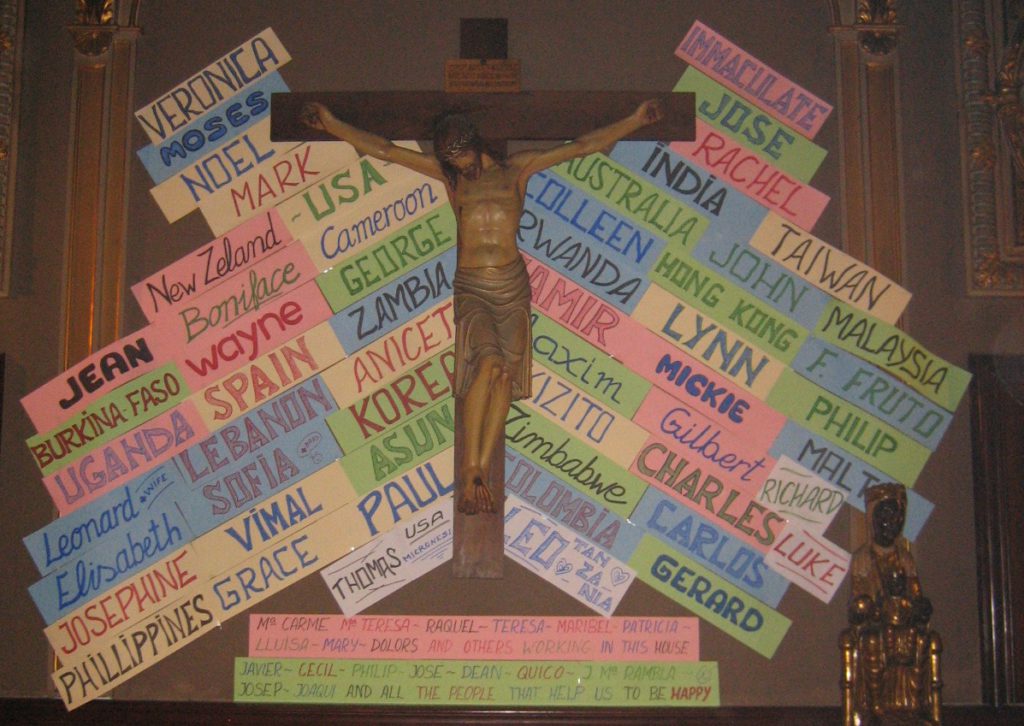 VERONICA
MOSES
NOEL
MARK
~USA
Cameroon
New Zeland
Boniface
GEORGE
ZAMBIA
JEAN
wayne
BURKINA-FASO
SPAIN
ANICET
UGANDA
LEBANON
KOREA
Leonard + WIFE
SOFIA
ASUN
Elisabeth
VIMAL
PAUL
JOSEPHINE
GRACE
PHILLIPPINES
THOMAS USA
IMMACULATE
JOSE
RACHEL
INDIA
AUSTRALIA
TAIWAN
COLLEEN
JOHN
RWANDA
HONG KONG
MALAYSIA
YAMIR
LYNN
F. FRUTO
Maxim
MICKIE
PHILIP
KIZITO
Gilbert
MALT
Zimbabwe
CHARLES
RICHARD
COLOMBIA
CARLOS
LUKE
LEO TANZANIA
GERARD
Mª CARME Mª TERESA - RAQUEL - TERESA - MARIBEL - PATRICIA -
LLUISA - MARY - DOLORS AND OTHERS WORKING IN THIS HOUSE
JAVIER ~ CECIL - PHILIP - JOSE ~ DEAN - QUICO ~ J Mª RAMBLA
JOSEP ~ JOAQUI AND ALL THE PEOPLE THAT HELP US TO BE HAPPY